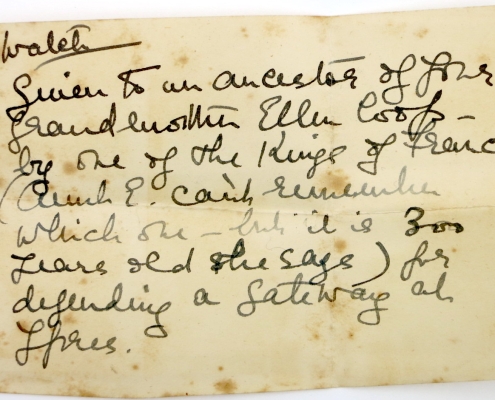 Watch
Given to an ancestor of your
grandmother Ellen Coops -
by one of the Kings of Franc
(Aunt E. can't remember
which one - but it is 300
years old she says) for
defending a gateway at
Ypres.